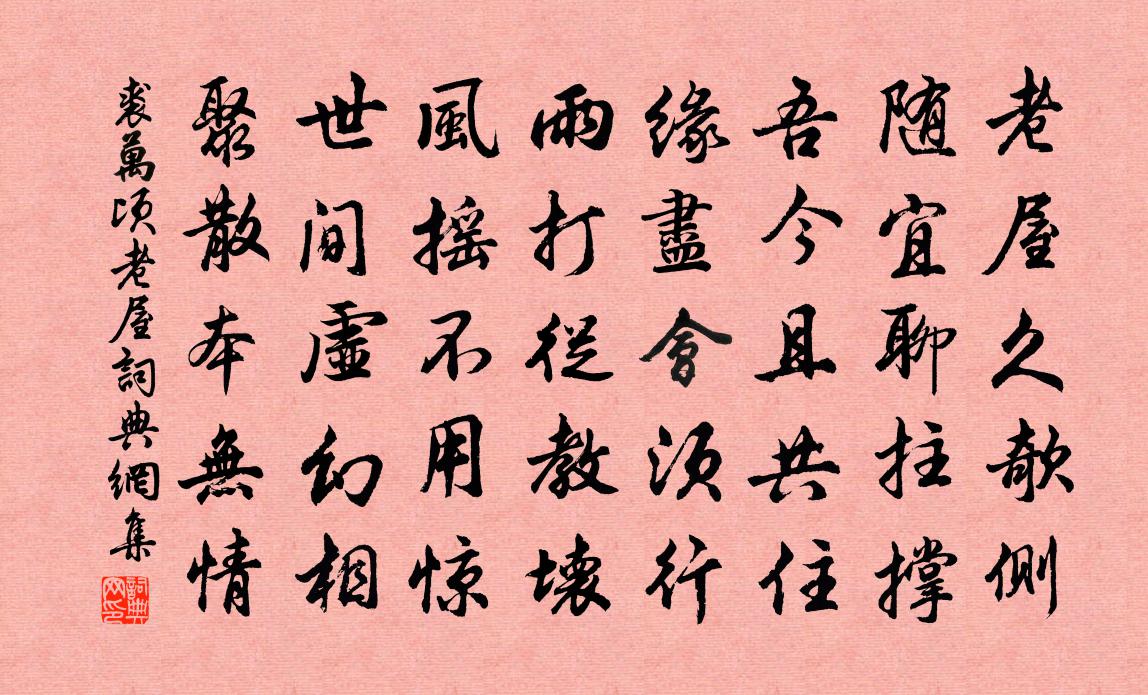 老屋久欹側
随宜聊拄撑
吾今且共住
緣盡會須行
雨打從教壞
風摇不用惊
世间虛幻相
聚散本無情
裘萬顷老屋詞典網集
詞典网印